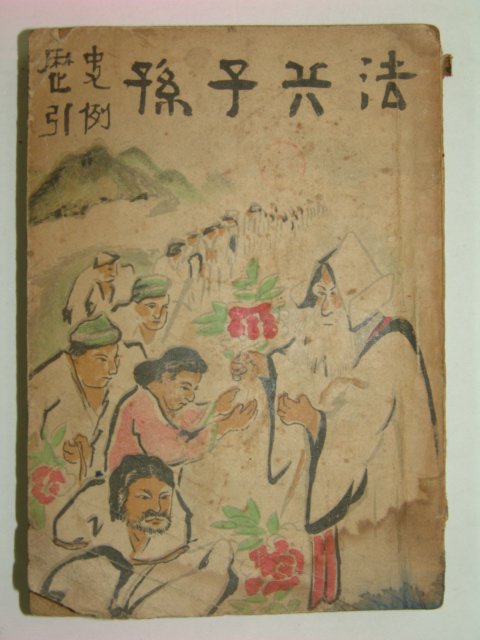 歷史
引例
孫子兵法